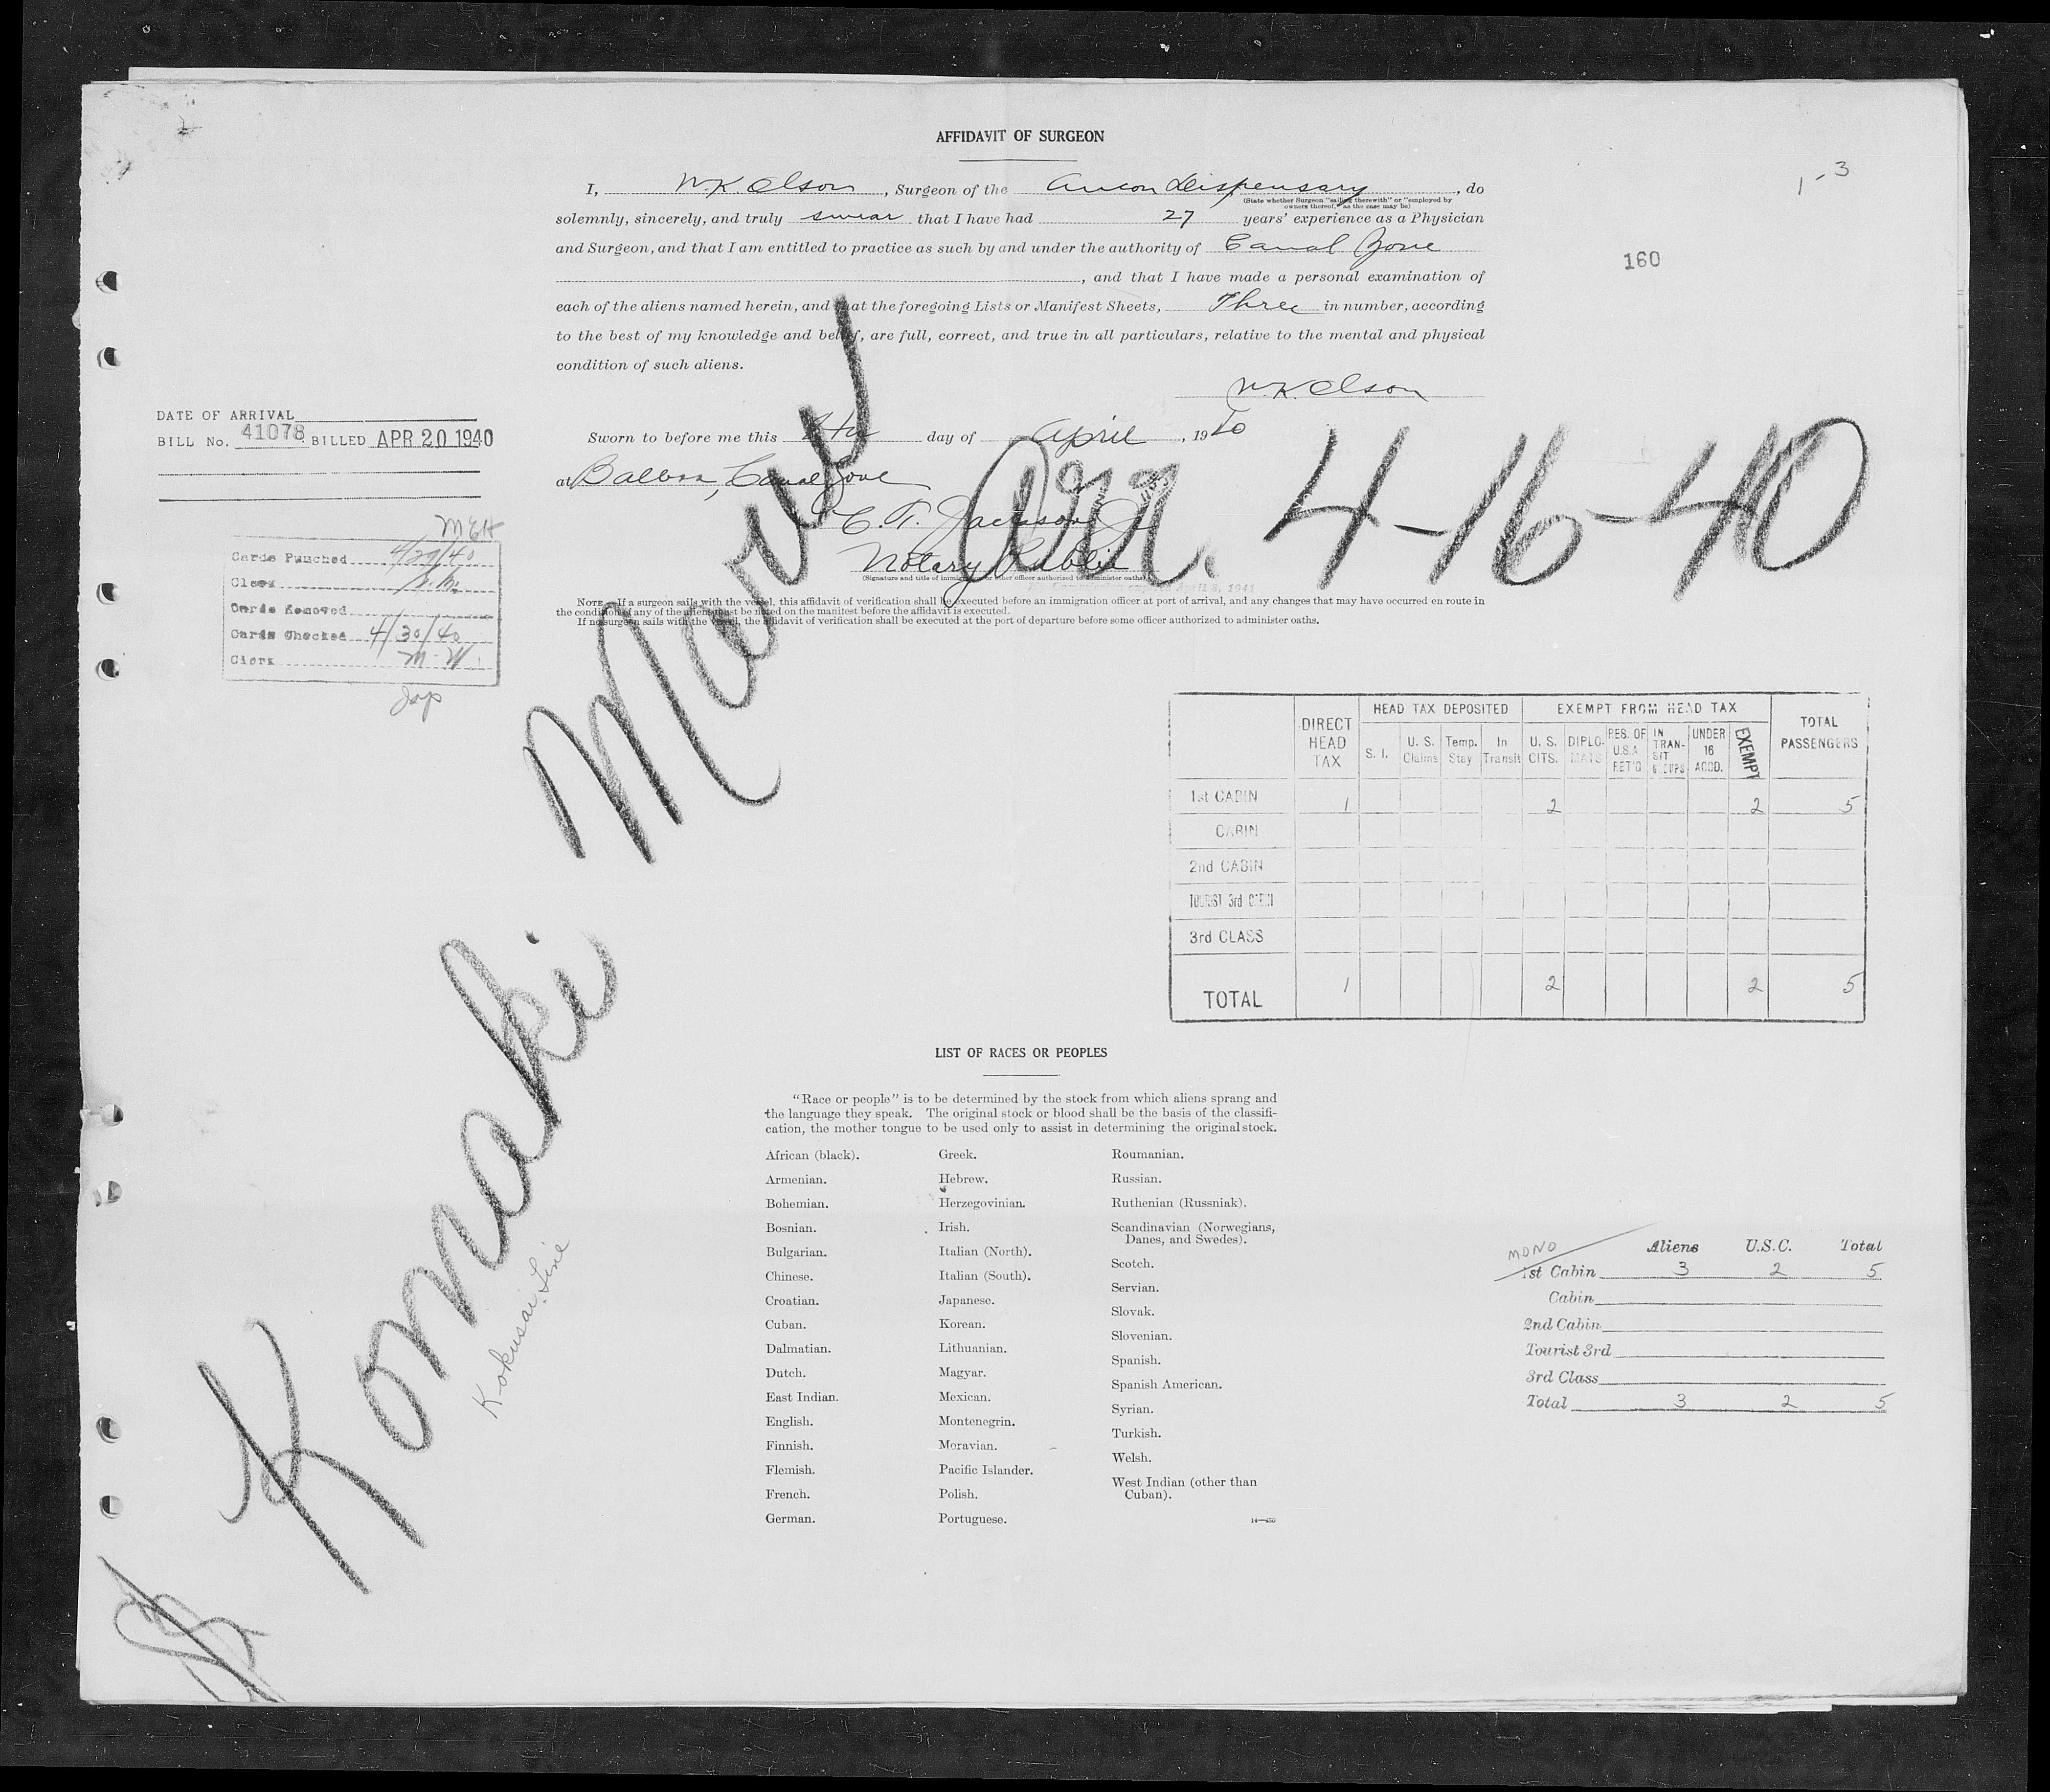 AFFIDAVIT OF SURGEON
1-3
I, W. K. Olson, Surgeon of the Ancon Dispensary, do
(State whether Surgeon "sailing therewith" or "employed by
owners thereof," as the case may be)
solemnly, sincerely, and truly swear that I have had 27 years' experience as a Physician
and Surgeon, and that I am entitled to practice as such by and under the authority of Canal Zone
, and that I have made a personal examination of
160
each of the aliens named herein, and that the foregoing Lists or Manifest Sheets, Three in number, according
to the best of my knowledge and belief, are full, correct, and true in all particulars, relative to the mental and physical
condition of such aliens.
W. K. Olson
DATE OF ARRIVAL
BILL No. 41078 BILLED APR 20 1940
Sworn to before me this day of April, 1940
at Balboa, Canal Zone
C. T. Jackson Jr
Notary Public
(Signature and title of immigration or other officer authorized to administer oaths)
April 8, 1941
Arr. 4-16-40
MEH
Cards Punched 4/29/40
Clerk
Cards Removed
Cards Checked 4/30/40
Clerk M. W.
Jap
NOTE.—If a surgeon sails with the vessel, this affidavit of verification shall be executed before an immigration officer at port of arrival, and any changes that may have occurred en route in
the condition of any of the aliens must be noted on the manifest before the affidavit is executed.
If no surgeon sails with the vessel, the affidavit of verification shall be executed at the port of departure before some officer authorized to administer oaths.
Komaki Maru
Kokusai Line
DIRECT HEAD TAX
HEAD TAX DEPOSITED
EXEMPT FROM HEAD TAX
TOTAL PASSENGERS
S. I. U. S. Claims Temp. Stay In Transit U. S. CITS. DIPLOMATS RES. OF U.S.A RET'G IN TRANSIT GROUPS UNDER 16 ACCD. EXEMPT
1st CABIN 1 2 2 5
CABIN
2nd CABIN
TOURIST 3rd CABIN
3rd CLASS
TOTAL 1 2 2 5
LIST OF RACES OR PEOPLES
"Race or people" is to be determined by the stock from which aliens sprang and
the language they speak. The original stock or blood shall be the basis of the classifi-
cation, the mother tongue to be used only to assist in determining the original stock.
African (black).
Armenian.
Bohemian.
Bosnian.
Bulgarian.
Chinese.
Croatian.
Cuban.
Dalmatian.
Dutch.
East Indian.
English.
Finnish.
Flemish.
French.
German.
Greek.
Hebrew.
Herzegovinian.
Irish.
Italian (North).
Italian (South).
Japanese.
Korean.
Lithuanian.
Magyar.
Mexican.
Montenegrin.
Moravian.
Pacific Islander.
Polish.
Portuguese.
Roumanian.
Russian.
Ruthenian (Russniak).
Scandinavian (Norwegians,
Danes, and Swedes).
Scotch.
Servian.
Slovak.
Slovenian.
Spanish.
Spanish American.
Syrian.
Turkish.
Welsh.
West Indian (other than
Cuban).
14—430
MONO Aliens U.S.C. Total
1st Cabin 3 2 5
Cabin
2nd Cabin
Tourist 3rd
3rd Class
Total 3 2 5